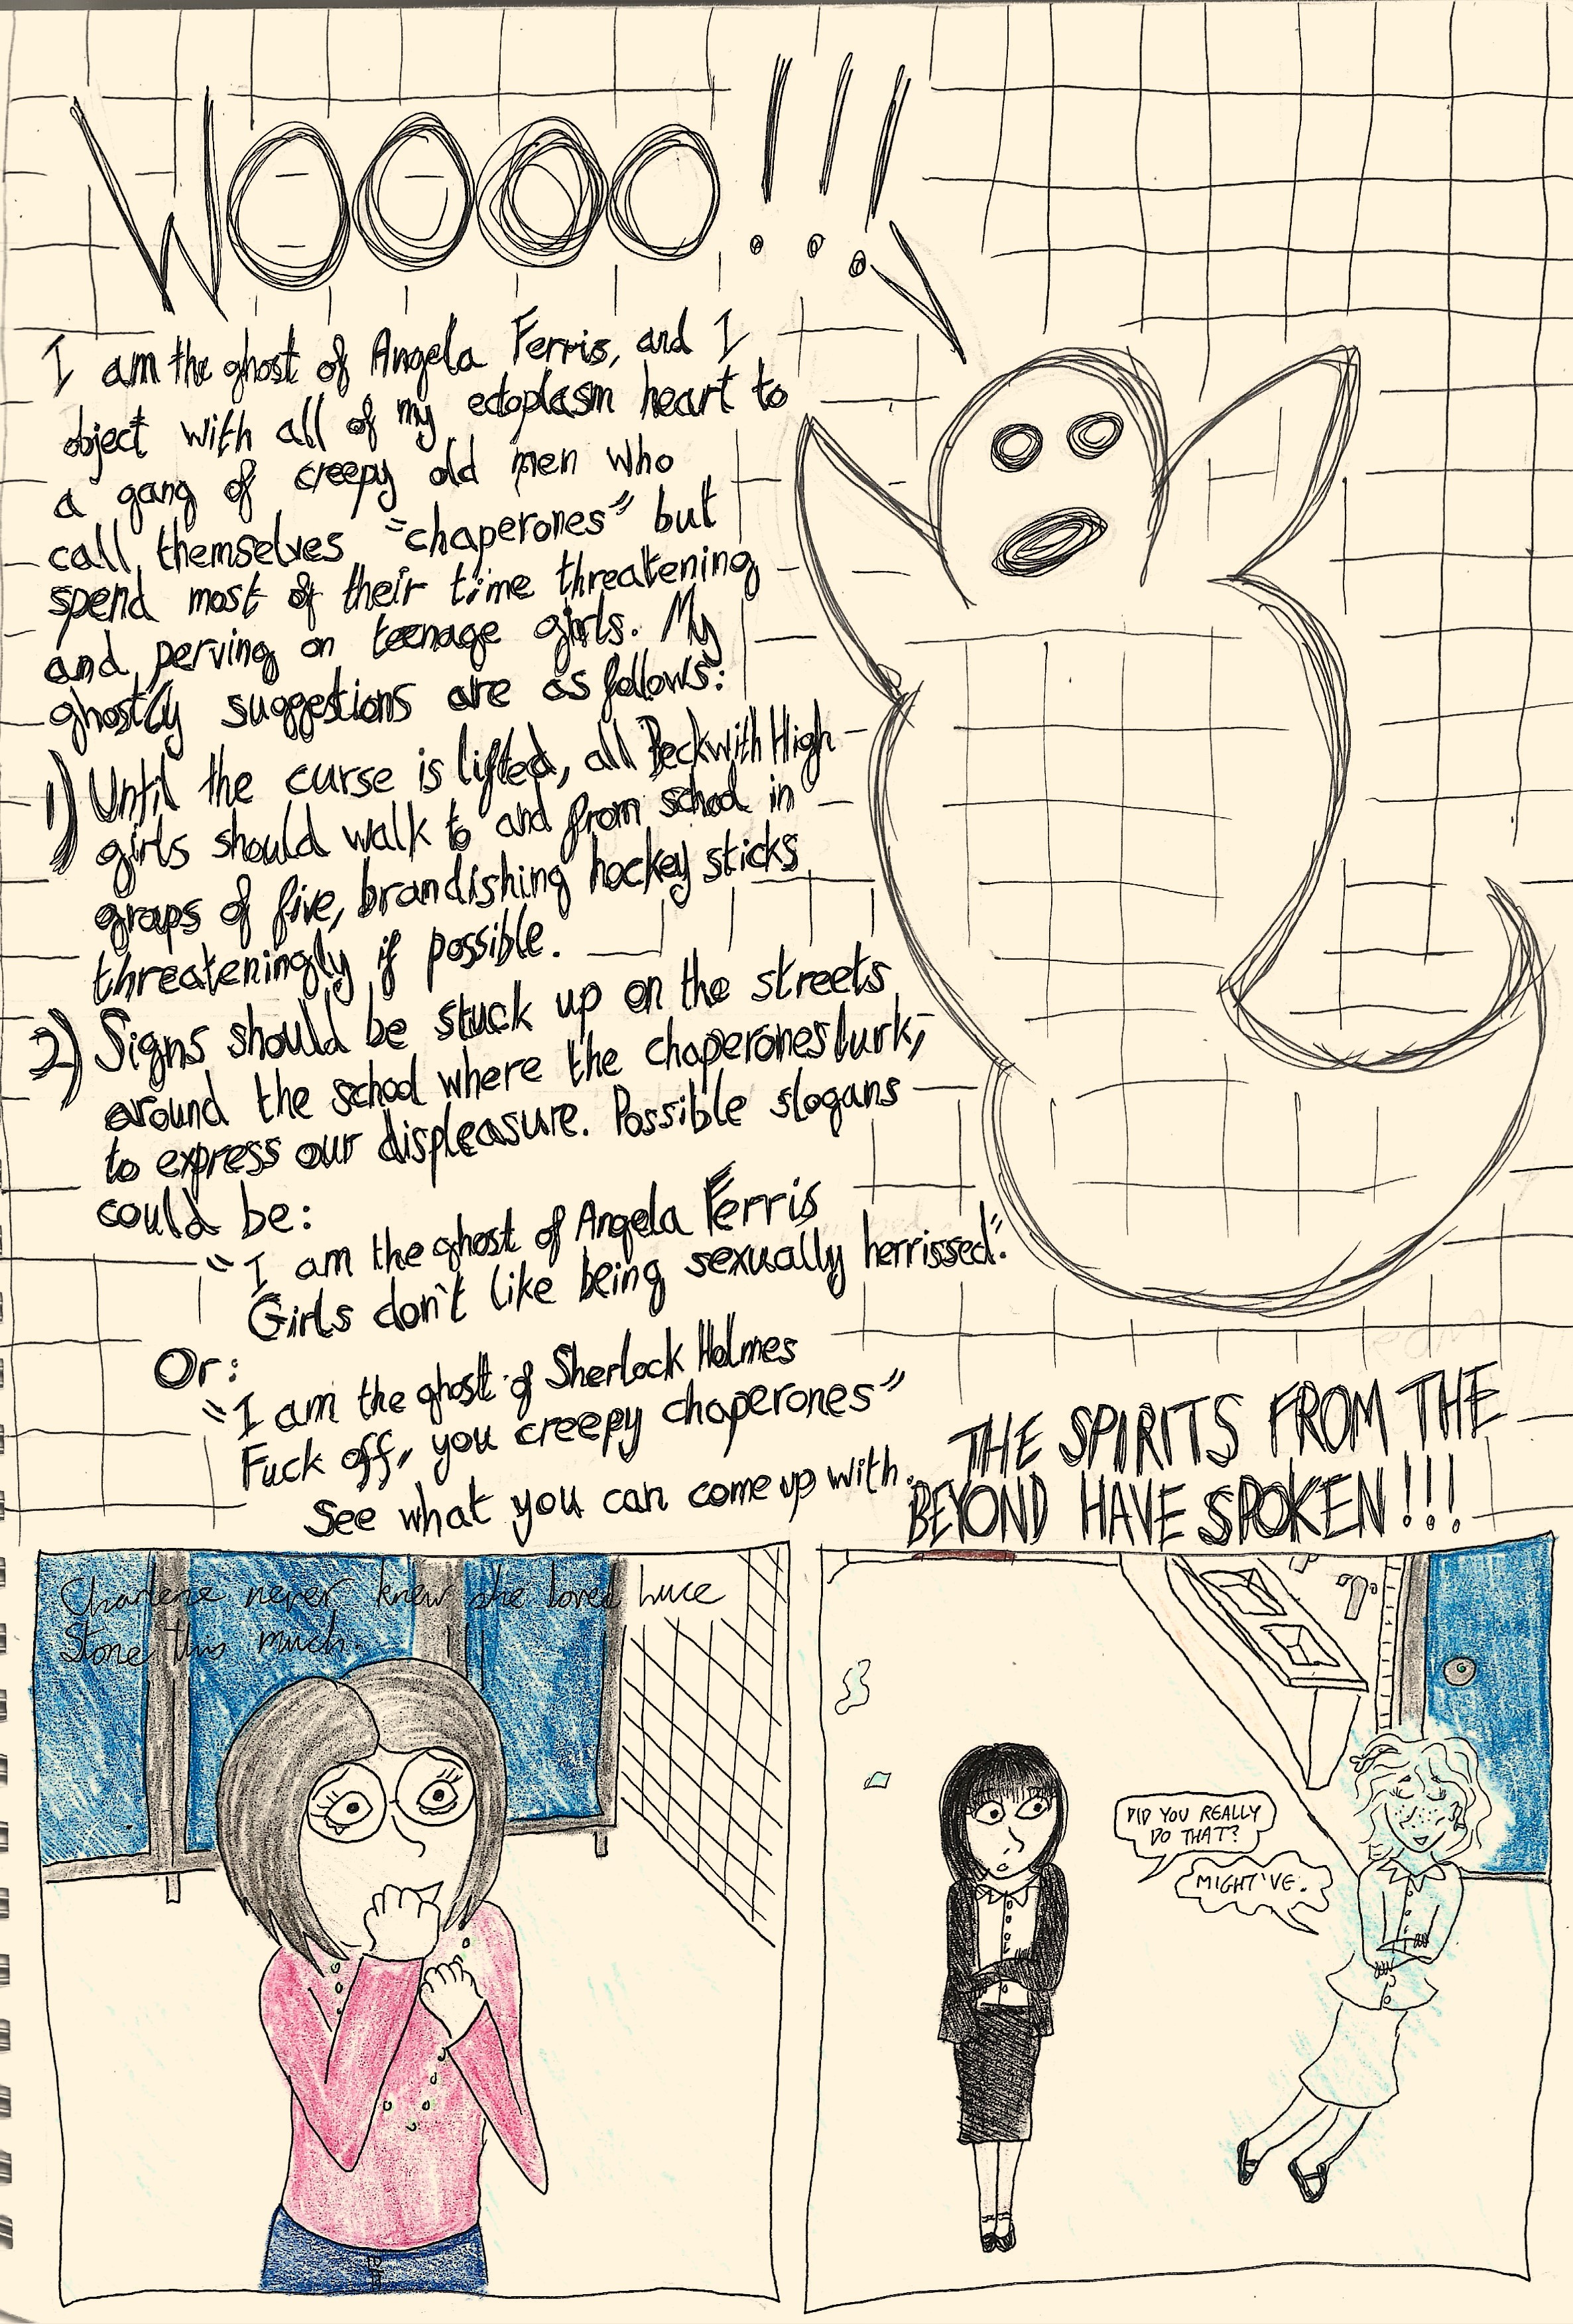 WOOOO!!!
I am the ghost of Angela Ferris, and I
object with all of my ectoplasm heart to
a gang of creepy old men who
call themselves "chaperones" but
spend most of their time threatening
and perving on teenage girls. My
ghostly suggestions are as follows:
1) Until the curse is lifted, all Beckwith High
girls should walk to and from school in
groups of five, brandishing hockey sticks
threateningly if possible.
2) Signs should be stuck up on the streets
around the school where the chaperones lurk,
to express our displeasure. Possible slogans
could be:
"I am the ghost of Angela Ferris
Girls don't like being sexually herrissed".
Or:
"I am the ghost of Sherlock Holmes
Fuck off, you creepy chaperones"
See what you can come up with.
THE SPIRITS FROM THE
BEYOND HAVE SPOKEN!!!
Charlene never knew she loved Luce
Stone this much.
DID YOU REALLY
DO THAT?
MIGHT'VE.